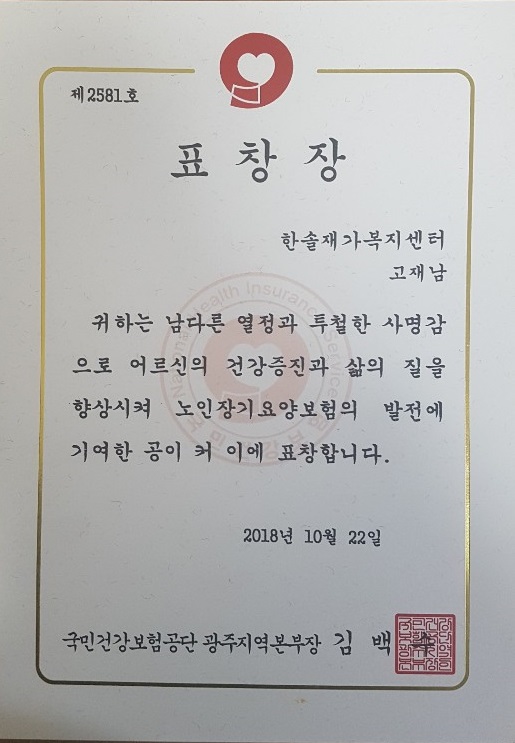 제2581호
표창장
한솔재가복지센터
고재남
귀하는 남다른 열정과 투철한 사명감
으로 어르신의 건강증진과 삶의 질을
향상시켜 노인장기요양보험의 발전에
기여한 공이 커 이에 표창합니다.
2018년 10월 22일
국민건강보험공단 광주지역본부장 김 백 수
National Health Insurance Service
국민건강보험